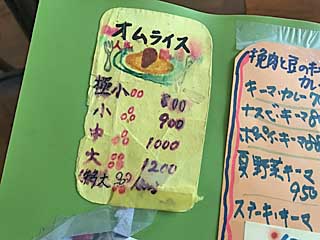 オムライス
人気
極小 800
小 900
中 1000
大 1200
特大
挽肉と豆のキ
カレー
キーマ・カレー
ナスビキーマ
ホーレンキーマ
夏野菜キーマ
950
ステーキ・キーマ